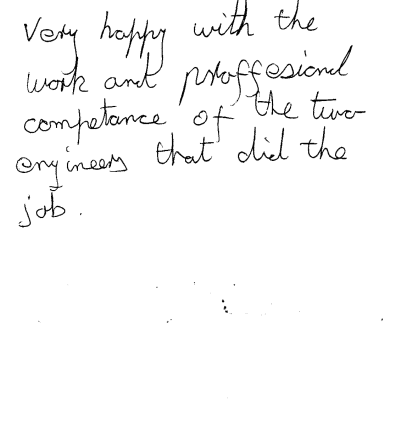 Very happy with the
work and proffesional
competance of the two
engineers that did the
job.